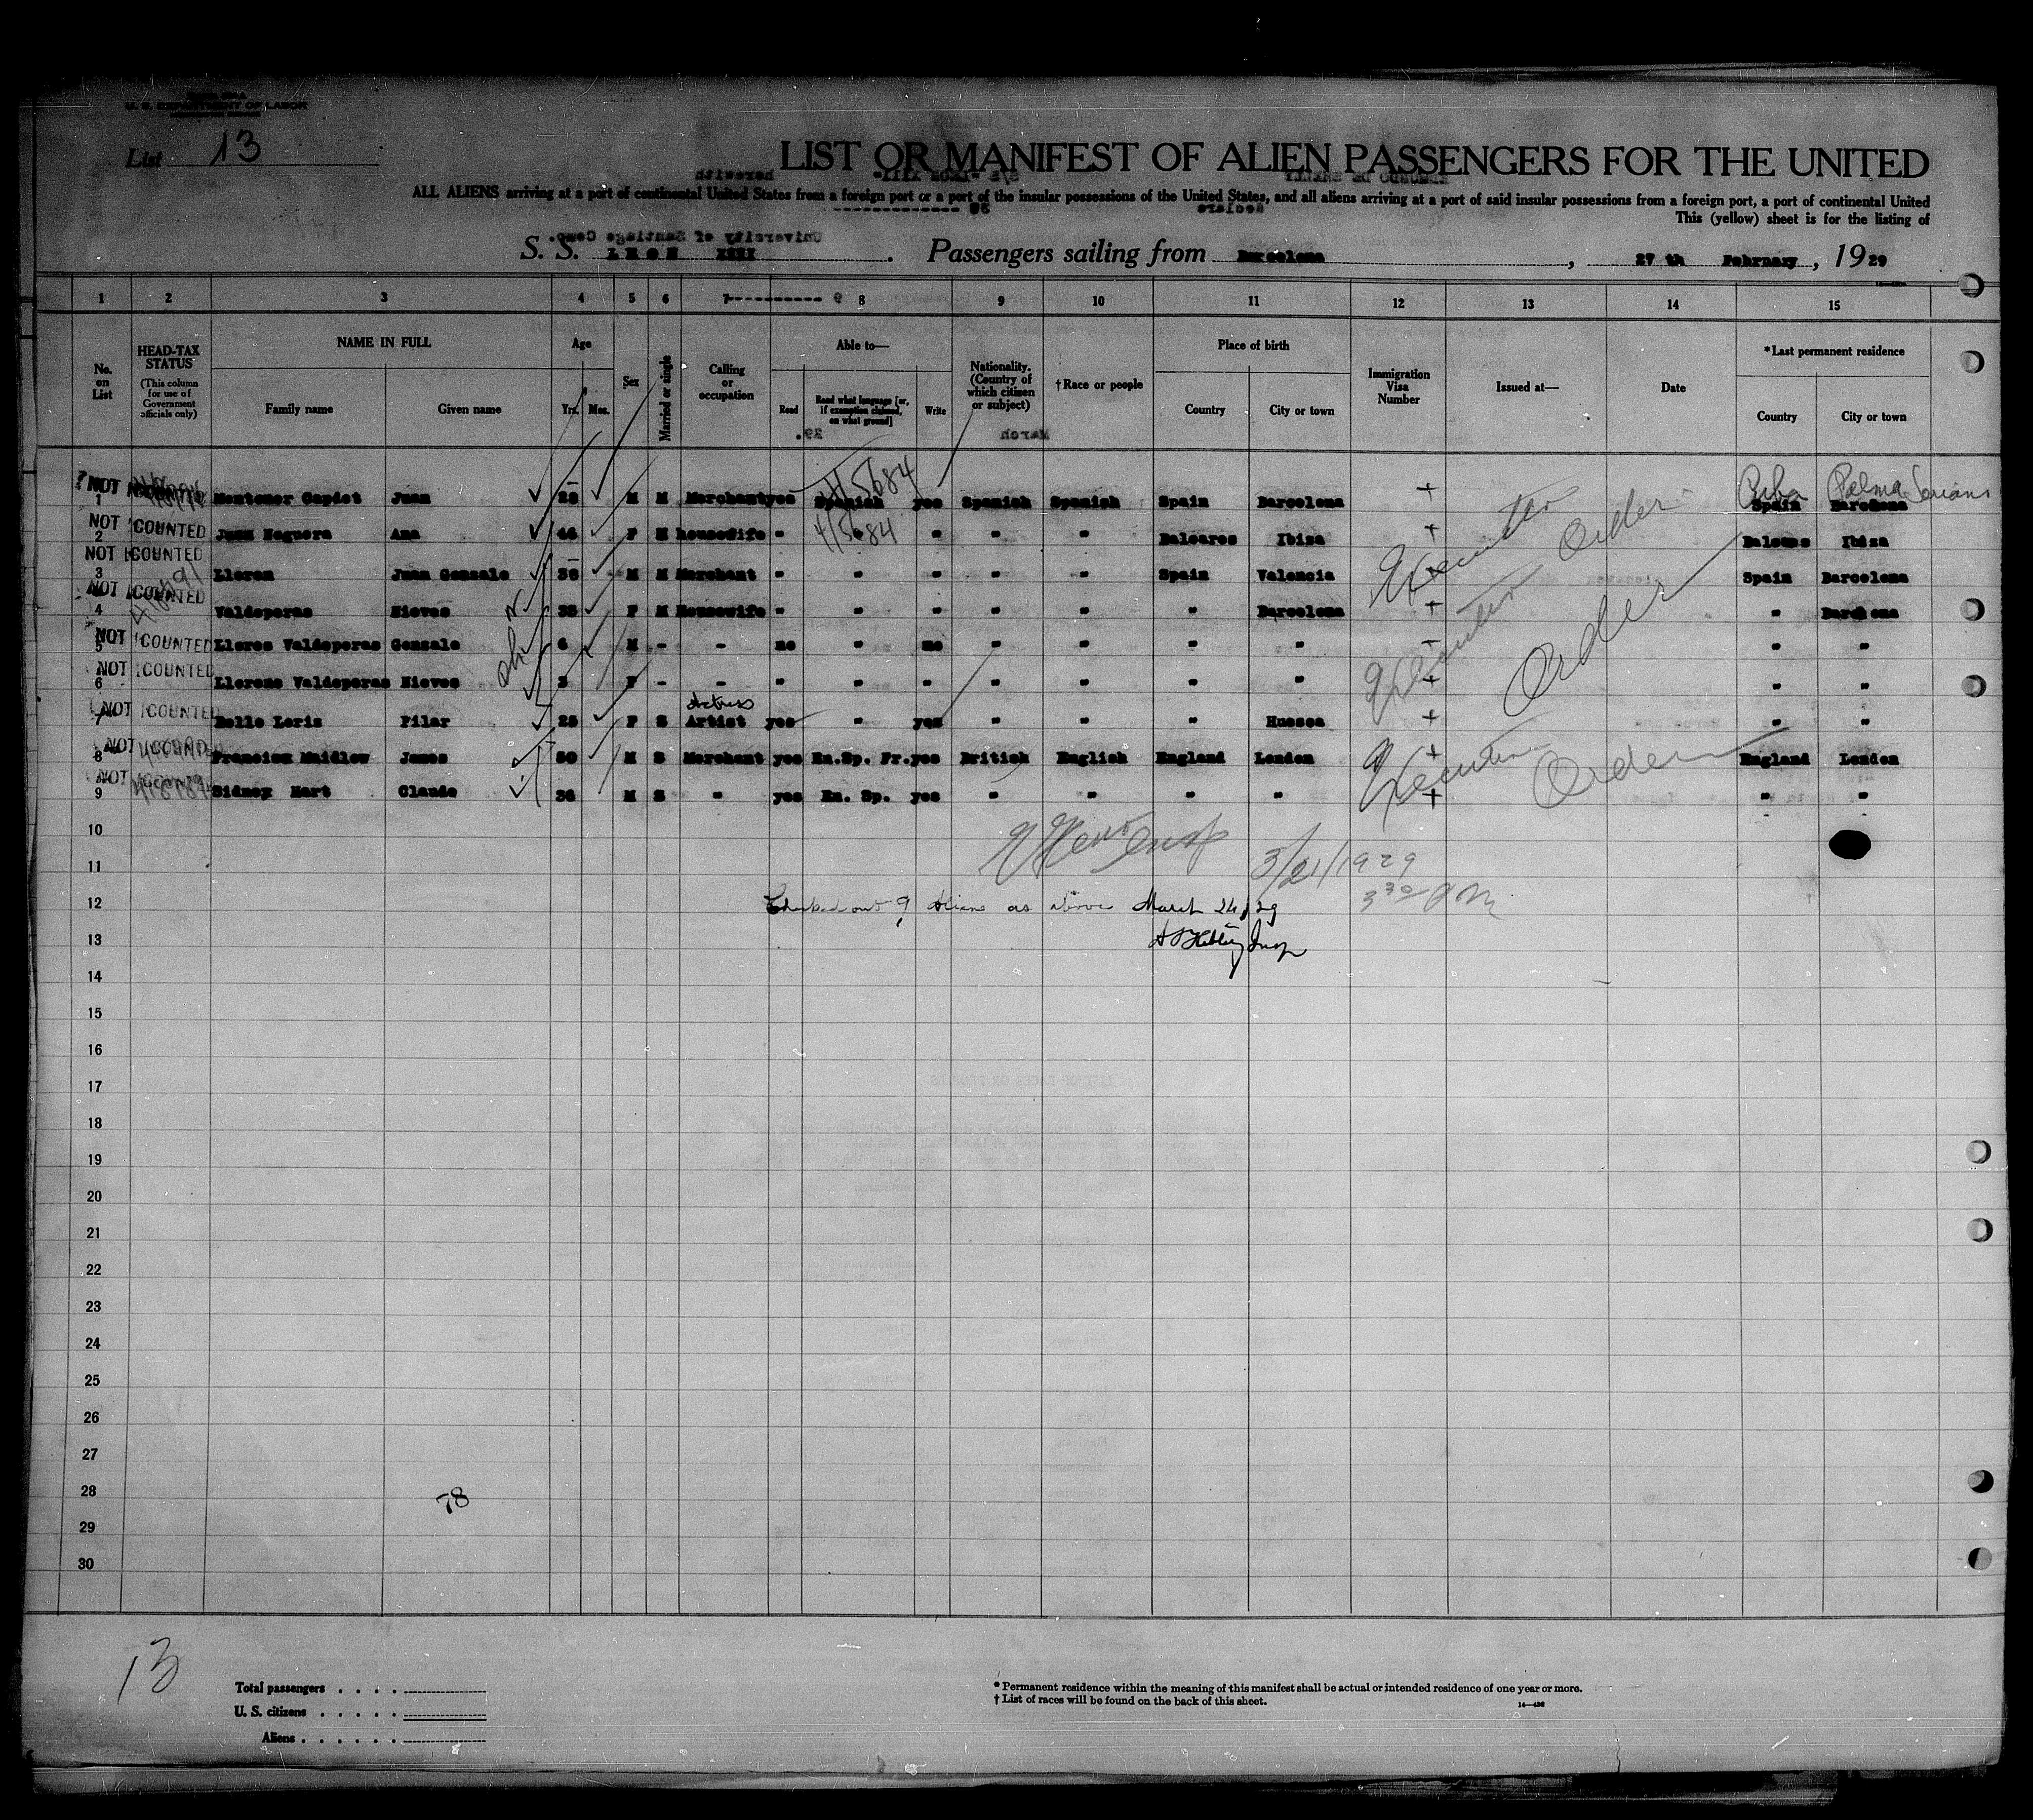 U. S. DEPARTMENT OF LABOR
List 13
LIST OR MANIFEST OF ALIEN PASSENGERS FOR THE UNITED
ALL ALIENS arriving at a port of continental United States from a foreign port or a port of the insular possessions of the United States, and all aliens arriving at a port of said insular possessions from a foreign port, a port of continental United
This (yellow) sheet is for the listing of
S. S. LEON XIII . Passengers sailing from Barcelona , 27 th February , 1929
1 2 3 4 5 6 7 8 9 10 11 12 13 14 15
No. on List
HEAD-TAX STATUS
(This column for use of Government officials only)
NAME IN FULL
Family name Given name
Age
Yrs. Mos.
Sex
Married or single
Calling or occupation
Able to—
Read
Read what language [or, if exemption claimed, on what ground]
Write
Nationality. (Country of which citizen or subject)
†Race or people
Place of birth
Country City or town
Immigration Visa Number
Issued at—
Date
*Last permanent residence
Country City or town
4/5684
Cuba Palma Soriano
NOT 1 Juan 28 M M Merchant yes Spanish yes Spanish Spanish Spain Barcelona + Spain Barcelona
4/5684
NOT COUNTED 2 Juan Noguera Ana 46 F M housewife " " " " " Baleares Ibiza + Baleares Ibiza
NOT COUNTED 3 Juan Gonzalo 36 M M Merchant " " " " " Spain Valencia + Spain Barcelona
NOT COUNTED 4 Valdeperas Nieves 35 F M Housewife " " " " " " Barcelona + " Barcelona
NOT COUNTED 5 Llores Valdeperas Gonzalo 6 M - - no " no " " " " " "
NOT COUNTED 6 Valdeperas Nieves 3 F - - " " " " " " " + " "
Actress
NOT COUNTED 7 Pilar 25 F S Artist yes " yes " " " Huesca + " "
NOT 8 Maidlow James 50 M S Merchant yes En.Sp. Fr. yes British English England London + England London
NOT 9 Sidney Hart Claude 36 M S " yes En. Sp. yes " " " " + " "
Executive Order
Executive Order
Executive Order
10
11 3/21/1929
3 30 PM
12 Checked out 9 Aliens as above March 24/29
13 Insp
14
15
16
17
18
19
20
21
22
23
24
25
26
27
28 78
29
30
13
Total passengers . . . .
U. S. citizens . . . . .
Aliens . . . . . .
* Permanent residence within the meaning of this manifest shall be actual or intended residence of one year or more.
† List of races will be found on the back of this sheet.